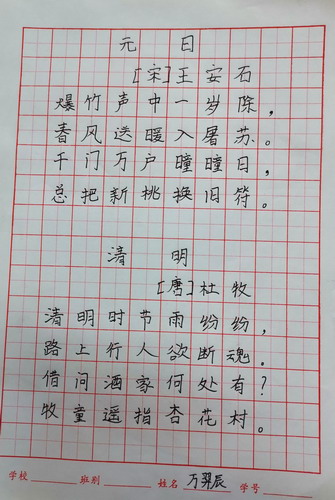 元日
[宋]王安石
爆竹声中一岁陈，
春风送暖入屠苏。
千门万户曈曈日，
总把新桃换旧符。
清明
[唐]杜牧
清明时节雨纷纷，
路上行人欲断魂。
借问酒家何处有？
牧童遥指杏花村。
学校 班别 姓名 万羿辰 学号